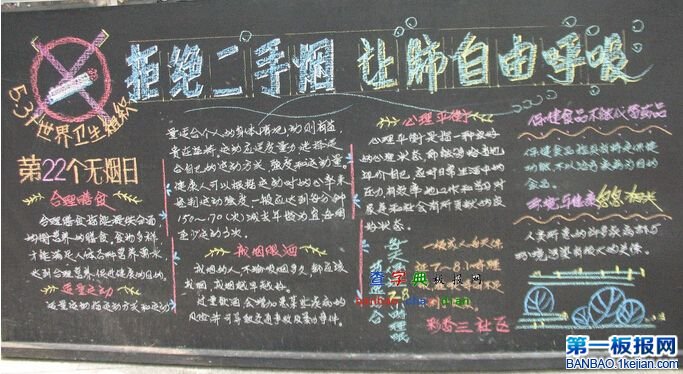 拒绝二手烟 让肺自由呼吸
5.31世界卫生组织
第22个无烟日
合理膳食
合理膳食指能提供合适
的所需营养的膳食。食物多样
才能满足人体各种营养需求
达到合理营养,促进健康的目的。
适量运动
适量运动指运动方式和运动
量适合个人的身体情况,运动则有益,
贵在坚持。运动应适度量力,选择适
合自己的运动方式、强度和运动量
健康人可以根据运动时的心率来
控制运动强度,一般应达到每分钟
150~170(次)减去年龄为宜,每周
至少运动3次。
戒烟限酒
吸烟的人,不论吸烟多久都应该
戒烟,戒烟越早越好。
过量饮酒会增加患某些疾病的
风险,并可导致交通事故及暴力事件。
心理平衡
心理平衡是指一种良好
的心理状态,即能够恰当地
评价自己,应对日常生活中的
压力,有效率地工作和学习,对
家庭和社会有所贡献的良
好状态。
一般成人每天保
证7-8小时睡眠
保健食品不能代替药品
保健食品指具有特定保健
功能,不以治疗疾病为目的
食品。
环境与健康息息相关
人类所患的许多疾病都与
环境污染有很大的关系。
彩香三社区
查字典板报网
第一板报网
BANBAO.1kejian.com